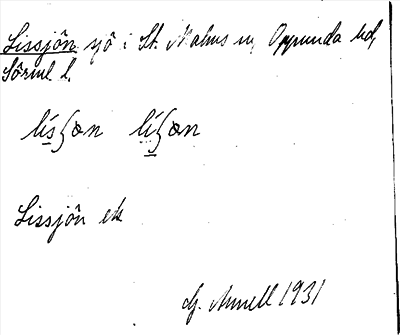 Lissjön sjö i St. Malms sn, Oppunda hd,
Sörml. l.
lísʃøn líʃøn
Lissjön ek
G. Annell 1931